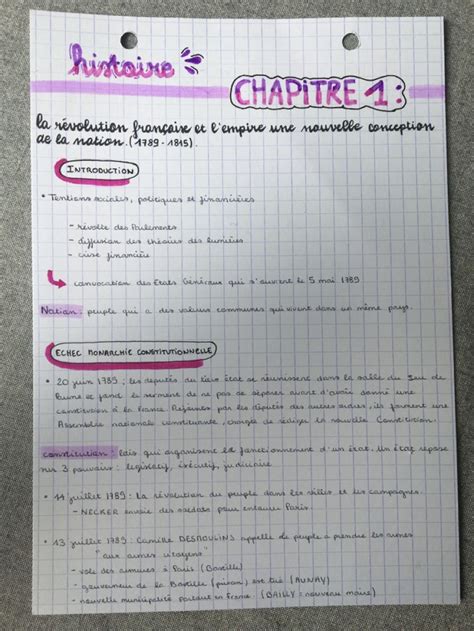 histoire
CHAPITRE 1:
la révolution française et l'empire une nouvelle conception
de la nation. (1789 - 1815).
INTRODUCTION
• Tentions sociales, politiques et financières
- révolte des Parlements
- diffusion des théories des lumières
- crise financière
↳ convocation des Etats Généraux qui s'ouvrent le 5 mai 1789
Nation : peuple qui a des valeurs communes qui vivent dans un même pays.
ECHEC MONARCHIE CONSTITUTIONNELLE
• 20 juin 1789 : les députés du tiers état se réunissent dans la salle du Jeu de
Paume et font le serment de ne pas se séparer avant d'avoir donné une
constitution à la france. Rejointes par les députés des autres ordres, ils forment une
Assemblée nationale constituante, chargée de rédiger la nouvelle Constitution.
constitution : lois qui organisent le fonctionnement d'un état. Un état repose
sur 3 pouvoirs : législatif, exécutif, judiciaire
• 11 juillet 1789 : La révolution du peuple dans les villes et les campagnes.
- NECKER envoie des soldats pour entourer Paris.
• 13 juillet 1789 : Camille DESMOULINS appelle le peuple a prendre les armes
"aux armes citoyens"
- vole des armures à Paris (Bastille)
- gouverneur de la Bastille (prison) est tué (AUNAY)
- nouvelle municipalité partout en france. (BAILLY : nouveau maire)